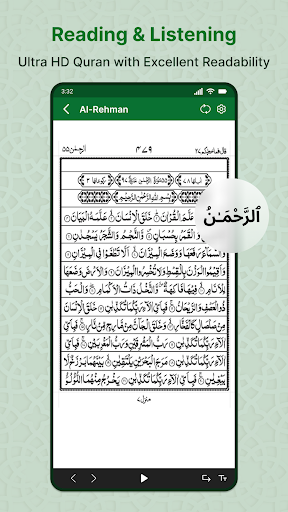 Reading & Listening
Ultra HD Quran with Excellent Readability
3:32
Al-Rehman
الرحمن ٥٥
٤٧٩
قال فما خطبكم ٢٧
بِسْمِ اللّٰهِ الرَّحْمٰنِ الرَّحِيْمِ
عَلَّمَ الْقُرْاٰنَ خَلَقَ الْاِنْسَانَ عَلَّمَهُ الْبَيَانَ
وَالْقَمَرُ بِحُسْبَانٍ وَّالنَّجْمُ وَالشَّجَرُ يَسْجُدٰنِ
اَلرَّحْمَـٰنُ
وَالسَّمَآءَ رَفَعَهَا وَوَضَعَ الْمِيْزَانَ اَلَّا تَطْغَوْا فِي الْمِيْزَانِ
وَاَقِيْمُوا الْوَزْنَ بِالْقِسْطِ وَلَا تُخْسِرُوا الْمِيْزَانَ وَالْاَرْضَ وَضَعَهَا
لِلْاَنَامِ فِيْهَا فَاكِهَةٌ وَّالنَّخْلُ ذَاتُ الْاَكْمَامِ وَالْحَبُّ
ذُو الْعَصْفِ وَالرَّيْحَانُ فَبِاَيِّ اٰلَآءِ رَبِّكُمَا تُكَذِّبٰنِ خَلَقَ الْاِنْسَانَ
مِنْ صَلْصَالٍ كَالْفَخَّارِ وَخَلَقَ الْجَآنَّ مِنْ مَّارِجٍ مِّنْ نَّارٍ فَبِاَيِّ
اٰلَآءِ رَبِّكُمَا تُكَذِّبٰنِ رَبُّ الْمَشْرِقَيْنِ وَرَبُّ الْمَغْرِبَيْنِ فَبِاَيِّ
اٰلَآءِ رَبِّكُمَا تُكَذِّبٰنِ مَرَجَ الْبَحْرَيْنِ يَلْتَقِيٰنِ بَيْنَهُمَا بَرْزَخٌ لَّا
يَبْغِيٰنِ فَبِاَيِّ اٰلَآءِ رَبِّكُمَا تُكَذِّبٰنِ يَخْرُجُ مِنْهُمَا اللُّؤْلُؤُ
منزل ٧